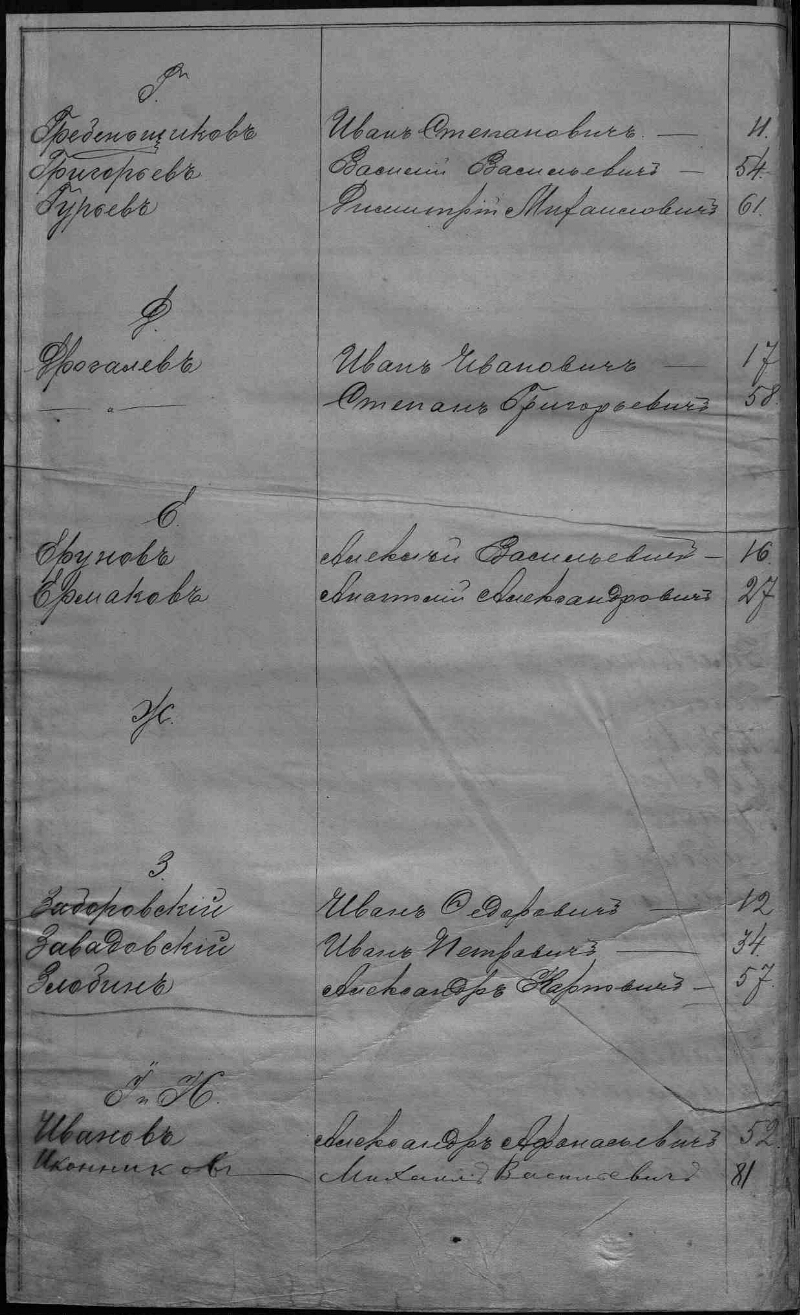 Г.
Гребенщиковъ Иванъ Степановичъ — 11.
Григорьевъ Василій Васильевичъ — 54.
Гурьевъ Димитрій Михаиловичъ 61.
Д.
Дрогалевъ Иванъ Ивановичъ — 17
— „ — Степанъ Григорьевичъ 58.
Е.
Еруновъ Алексѣй Васильевичъ — 16
Ермаковъ Анатолій Александровичъ 27
Ж.
З.
Задоровский Иванъ Ѳедоровичъ — 12
Завадовскій Иванъ Петровичъ — 34.
Злобинъ Александръ Карповичъ — 57.
І и И.
Ивановъ Александръ Афонасьевичъ 52.
Иконниковъ — Михаилъ Васильевичъ 81